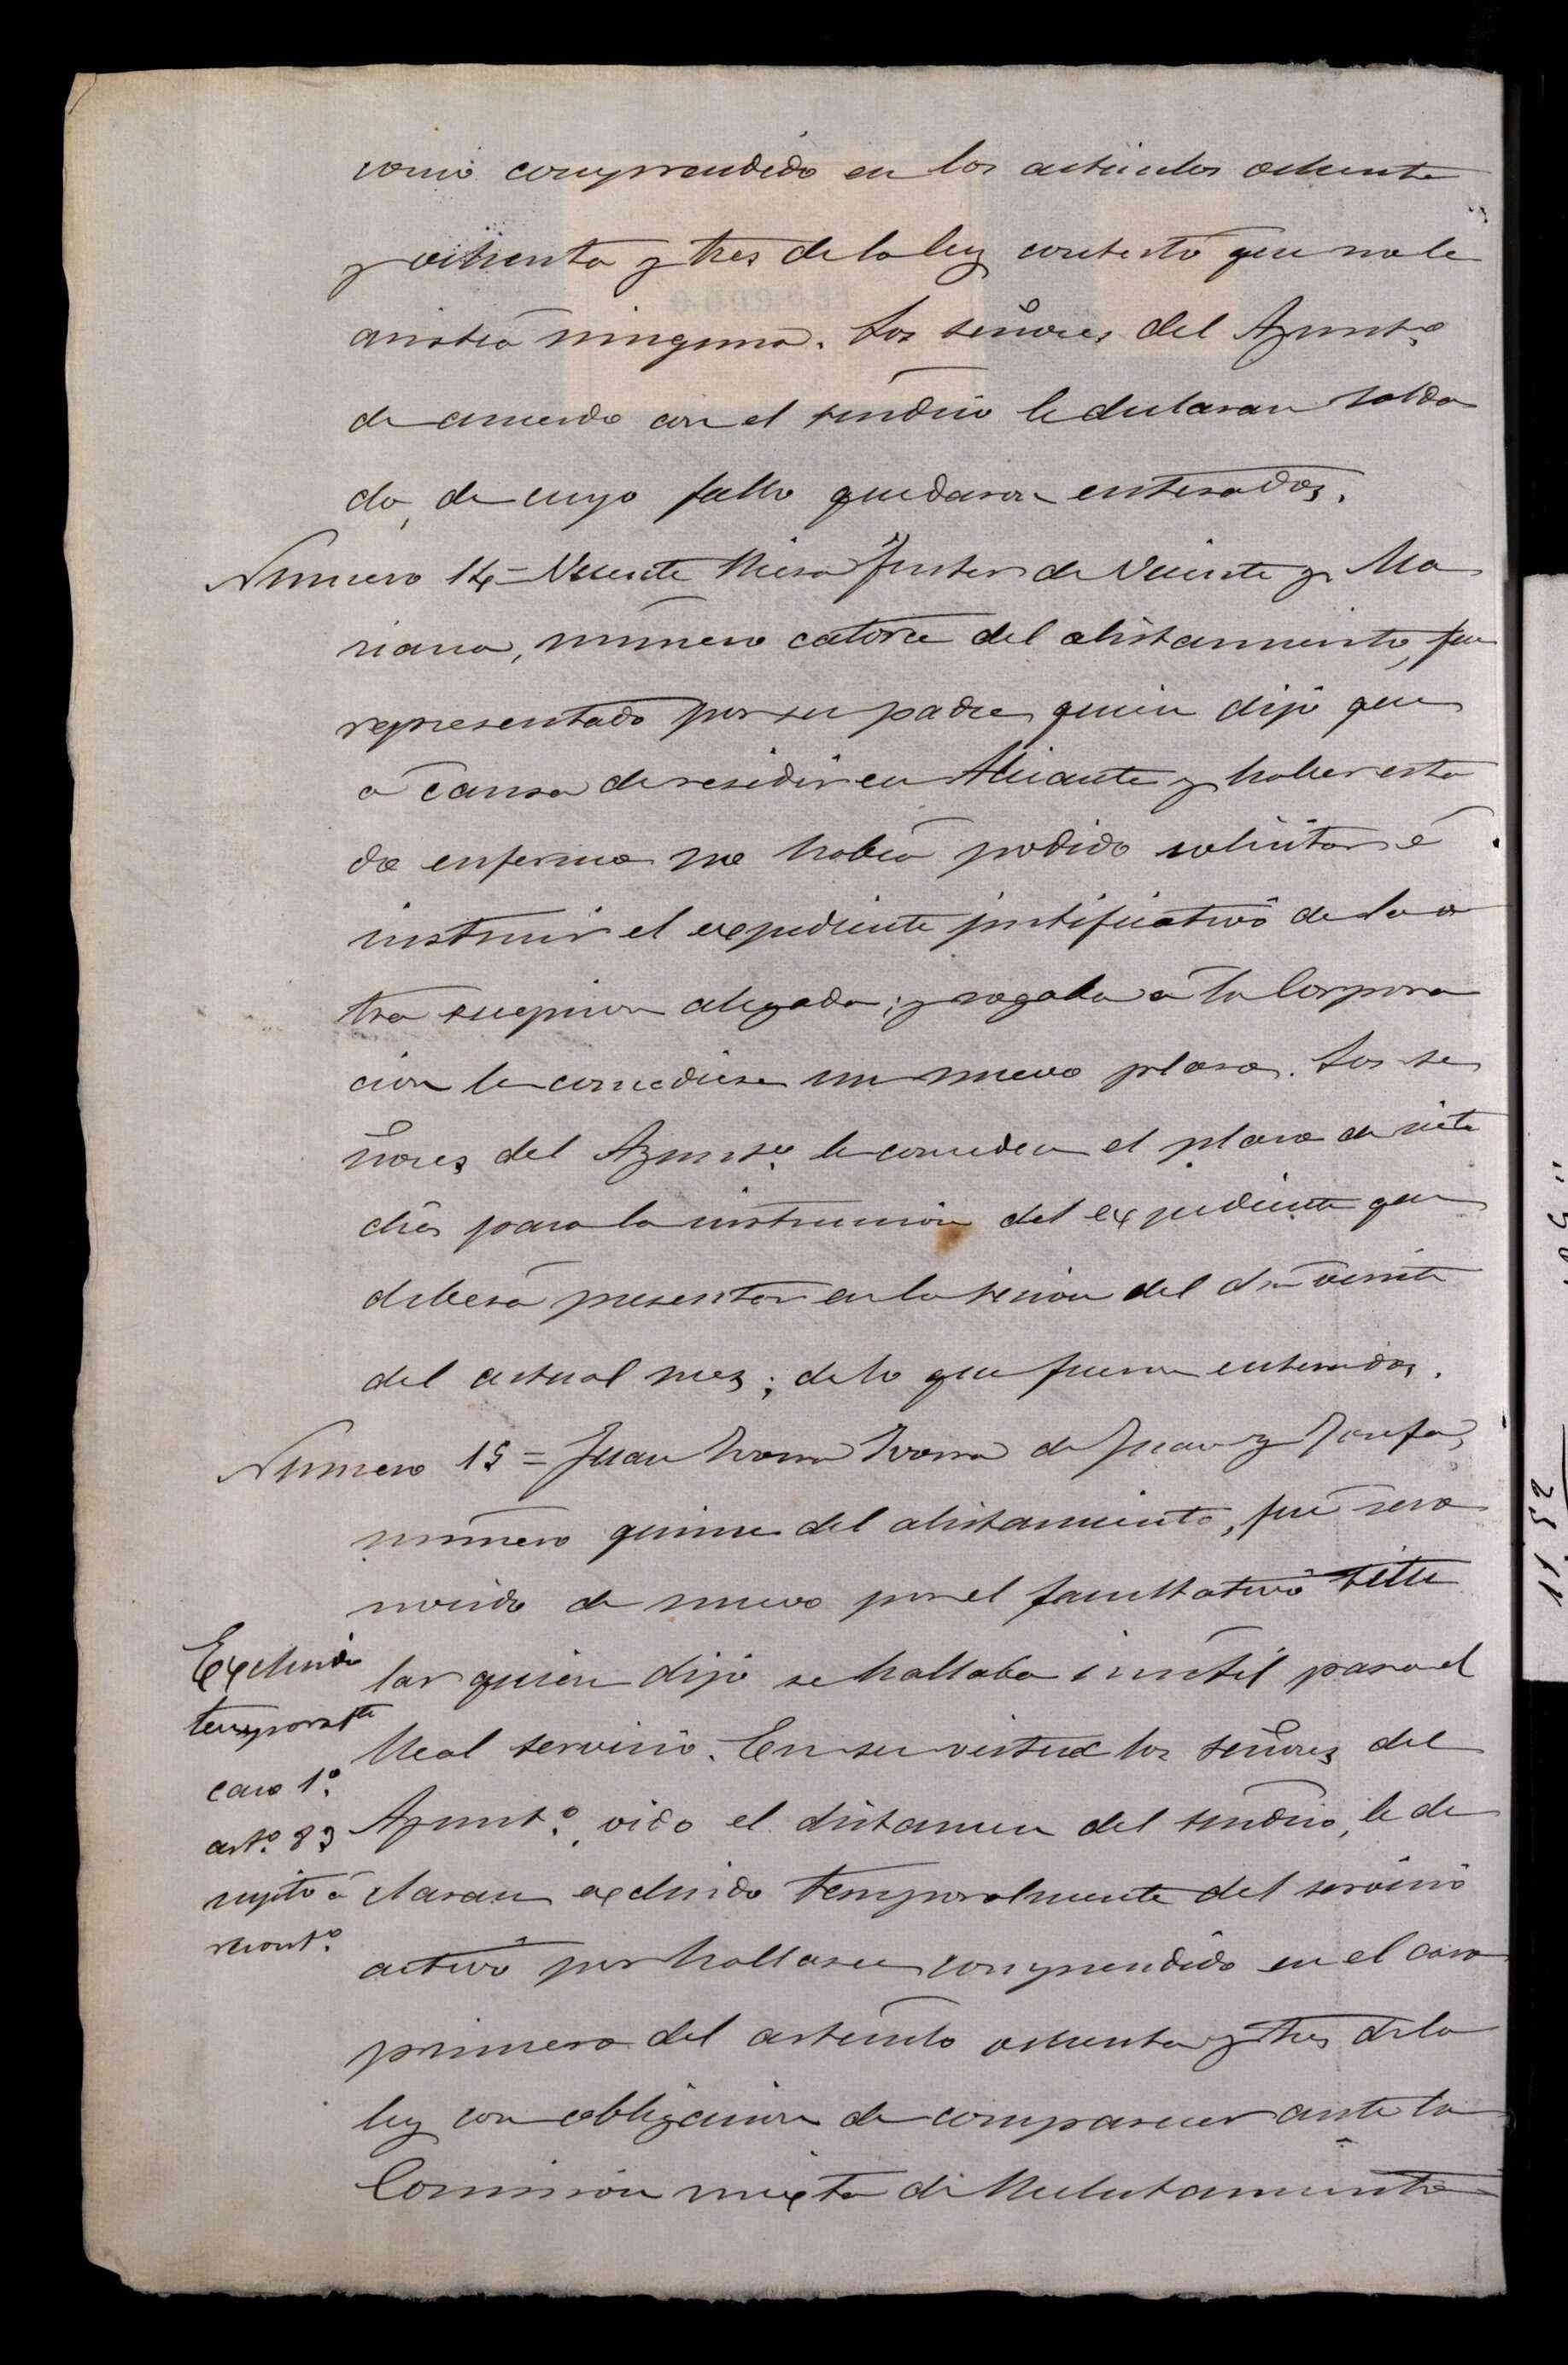 como comprendido en los articulos ochenta
y ochenta y tres de la ley contestó que no le
asistia ninguna. Los señores del Ayunt.º
de acuerdo con el sindico le declaran solda
do, de cuyo fallo quedaron enterados.
Numero 14 = Vicente Fuster de Vicente y Ma
riana, número catorce del alistamiento, fue
representado por su padre quien dijo que
á causa de residir en Alicante y haber esta
do enfermo no habia podido solicitar é
instruir el expediente justificativo de la o
tra excepcion alegada; y rogaba á la Corpora
cion le concediese un nuevo plazo. Los se
ñores del Ayunt.º le conceden el plazo de siete
dias para la instruccion del expediente que
deberá presentar en la sesion del dia veinte
del actual mes; de lo que fueron enterados.
Numero 15 = Juan Ivorra Ivorra de Juan y Josefa,
número quince del alistamiento, fué reco
nocido de nuevo por el facultativo titu
lar quien dijo se hallaba inútil para el
Real servicio. En su virtud los señores del
Ayunt.º, oido el dictamen del sindico, le de
claran excluido temporalmente del servicio
activo por hallarse comprendido en el caso
primero del articulo ochenta y tres de la
ley con obligacion de comparecer ante la
Comision mixta de Reclutamiento
Excluido
temporalte
caso 1º.
artº. 83
sujeto á
recont.º
11 52